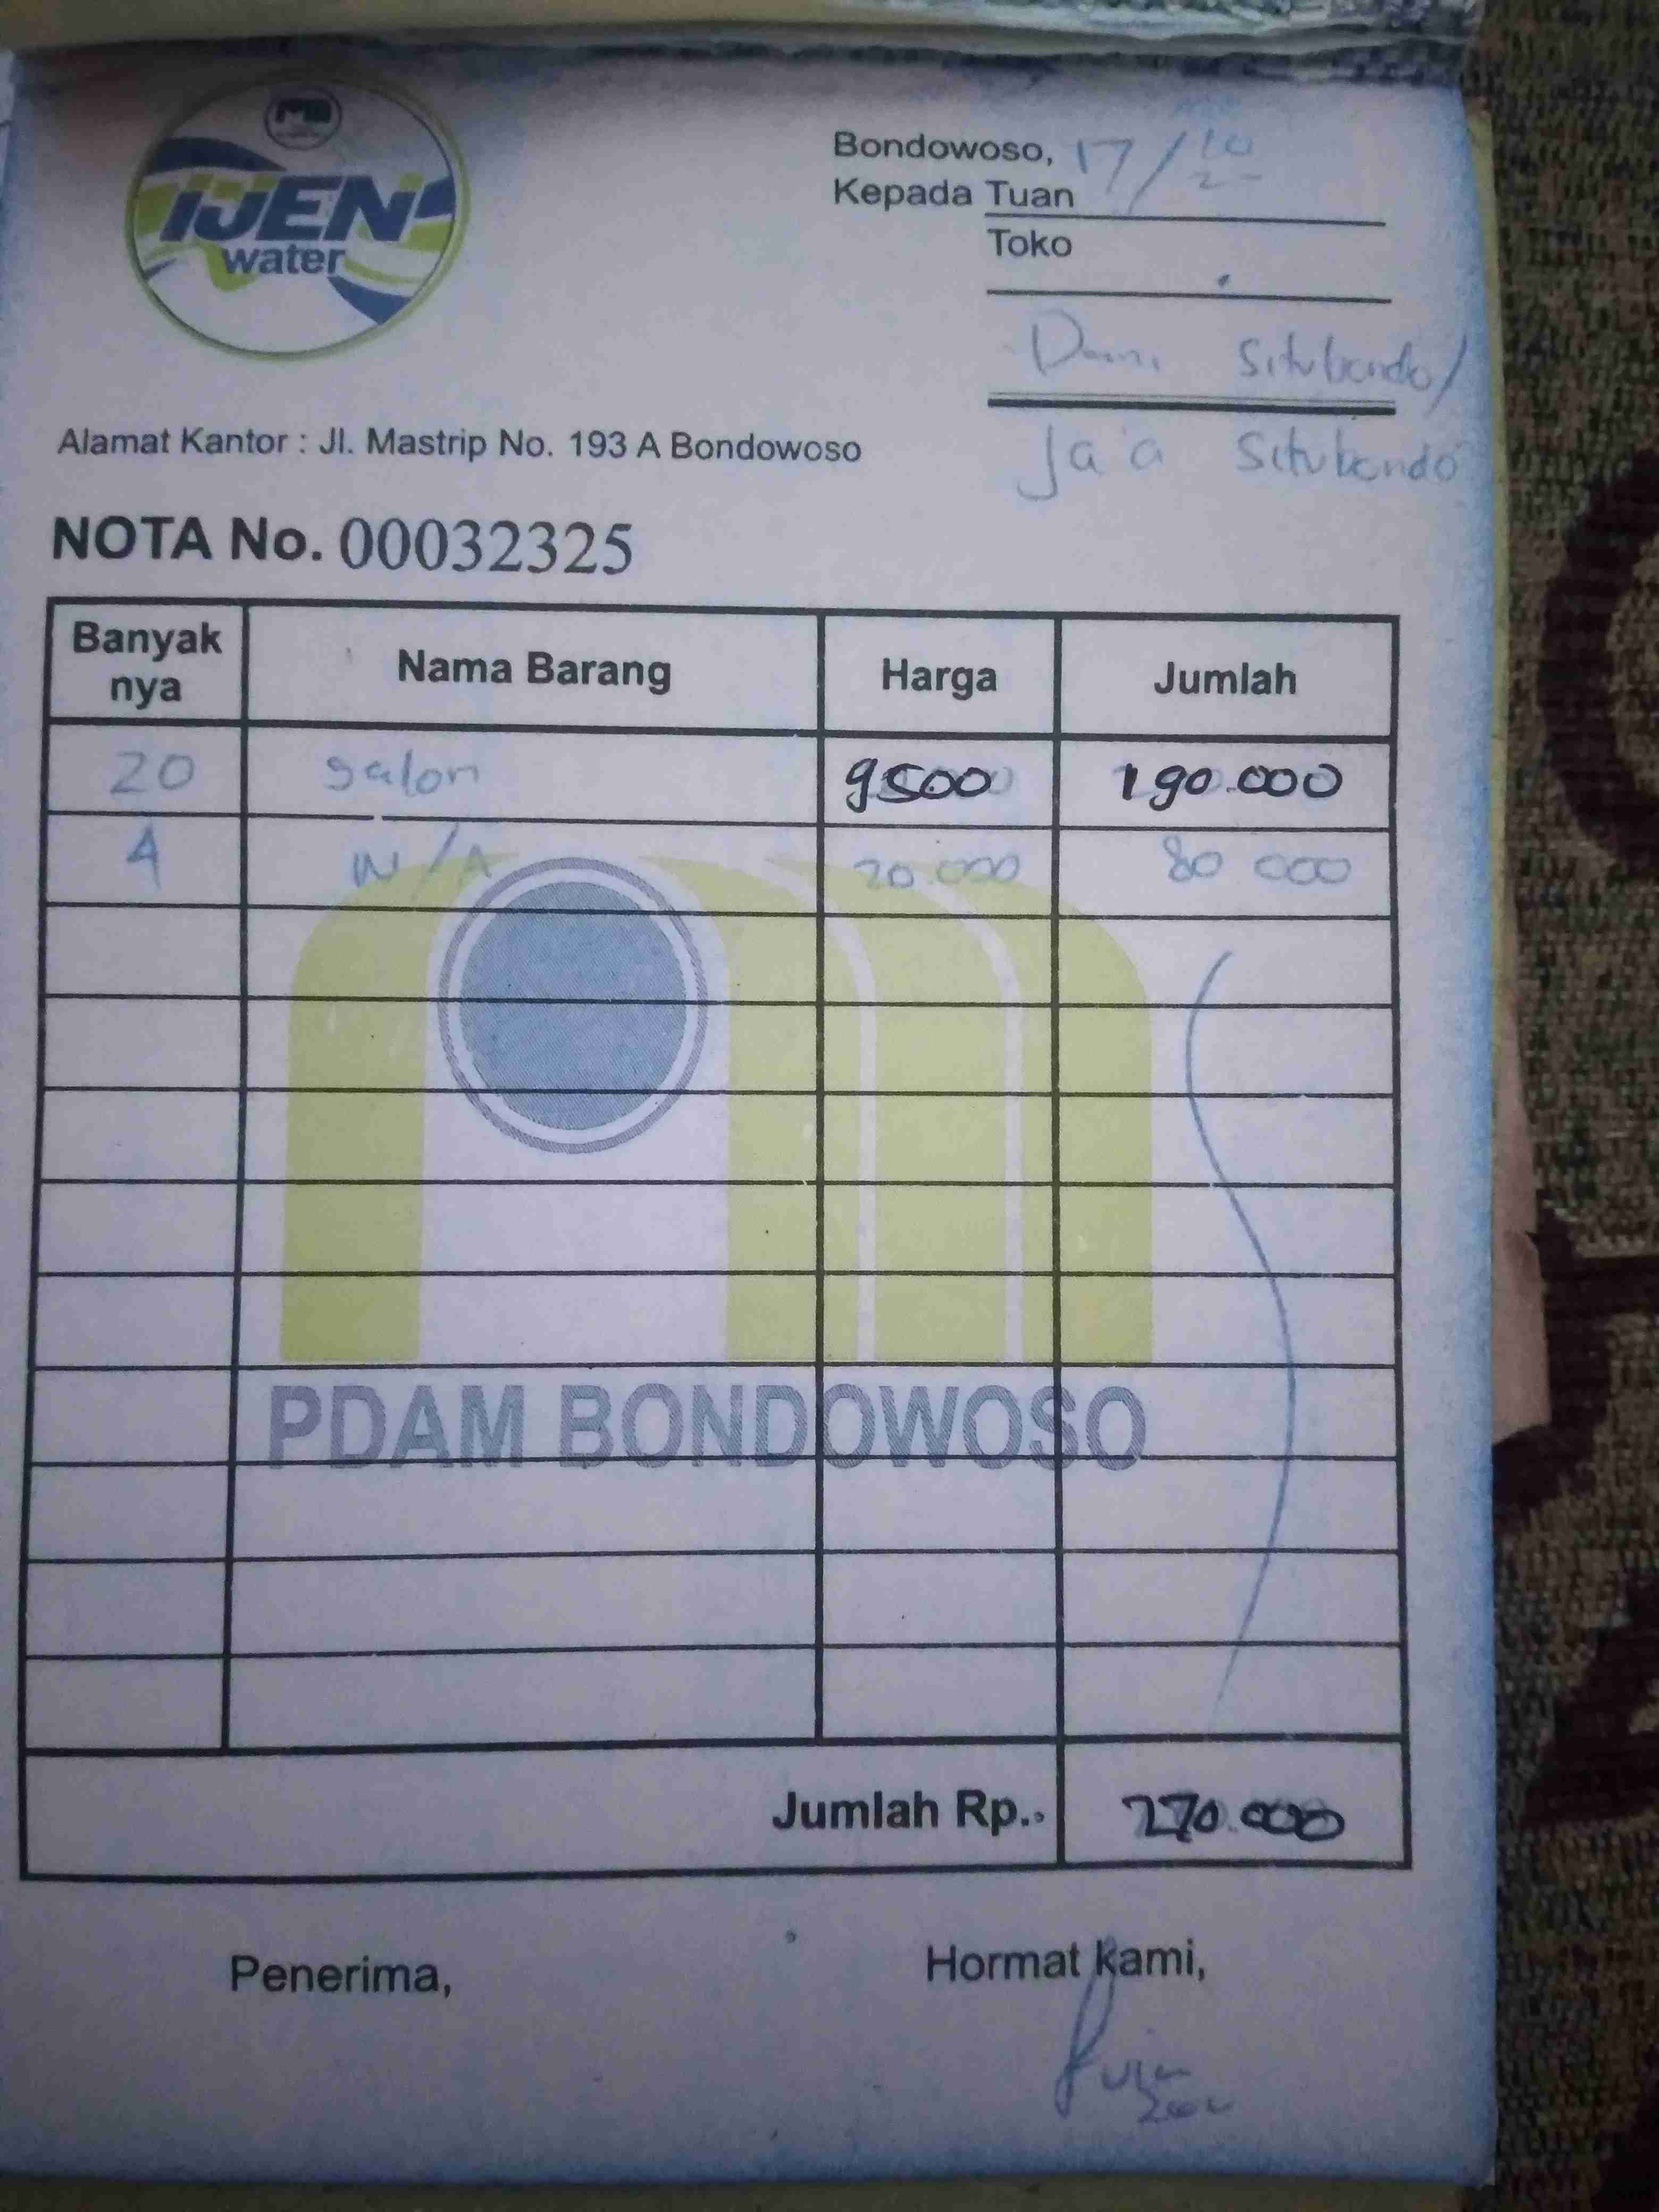 IJEN
water
Bondowoso, 17/10
Kepada Tuan
Toko
Situbondo/
Ja'a Situbondo
Alamat Kantor : Jl. Mastrip No. 193 A Bondowoso
NOTA No. 00032325
Banyak nya Nama Barang Harga Jumlah
20 galon 9500 190.000
4 W/A 20.000 80 000
PDAM BONDOWOSO
Jumlah Rp. 270.000
Penerima, Hormat Kami,